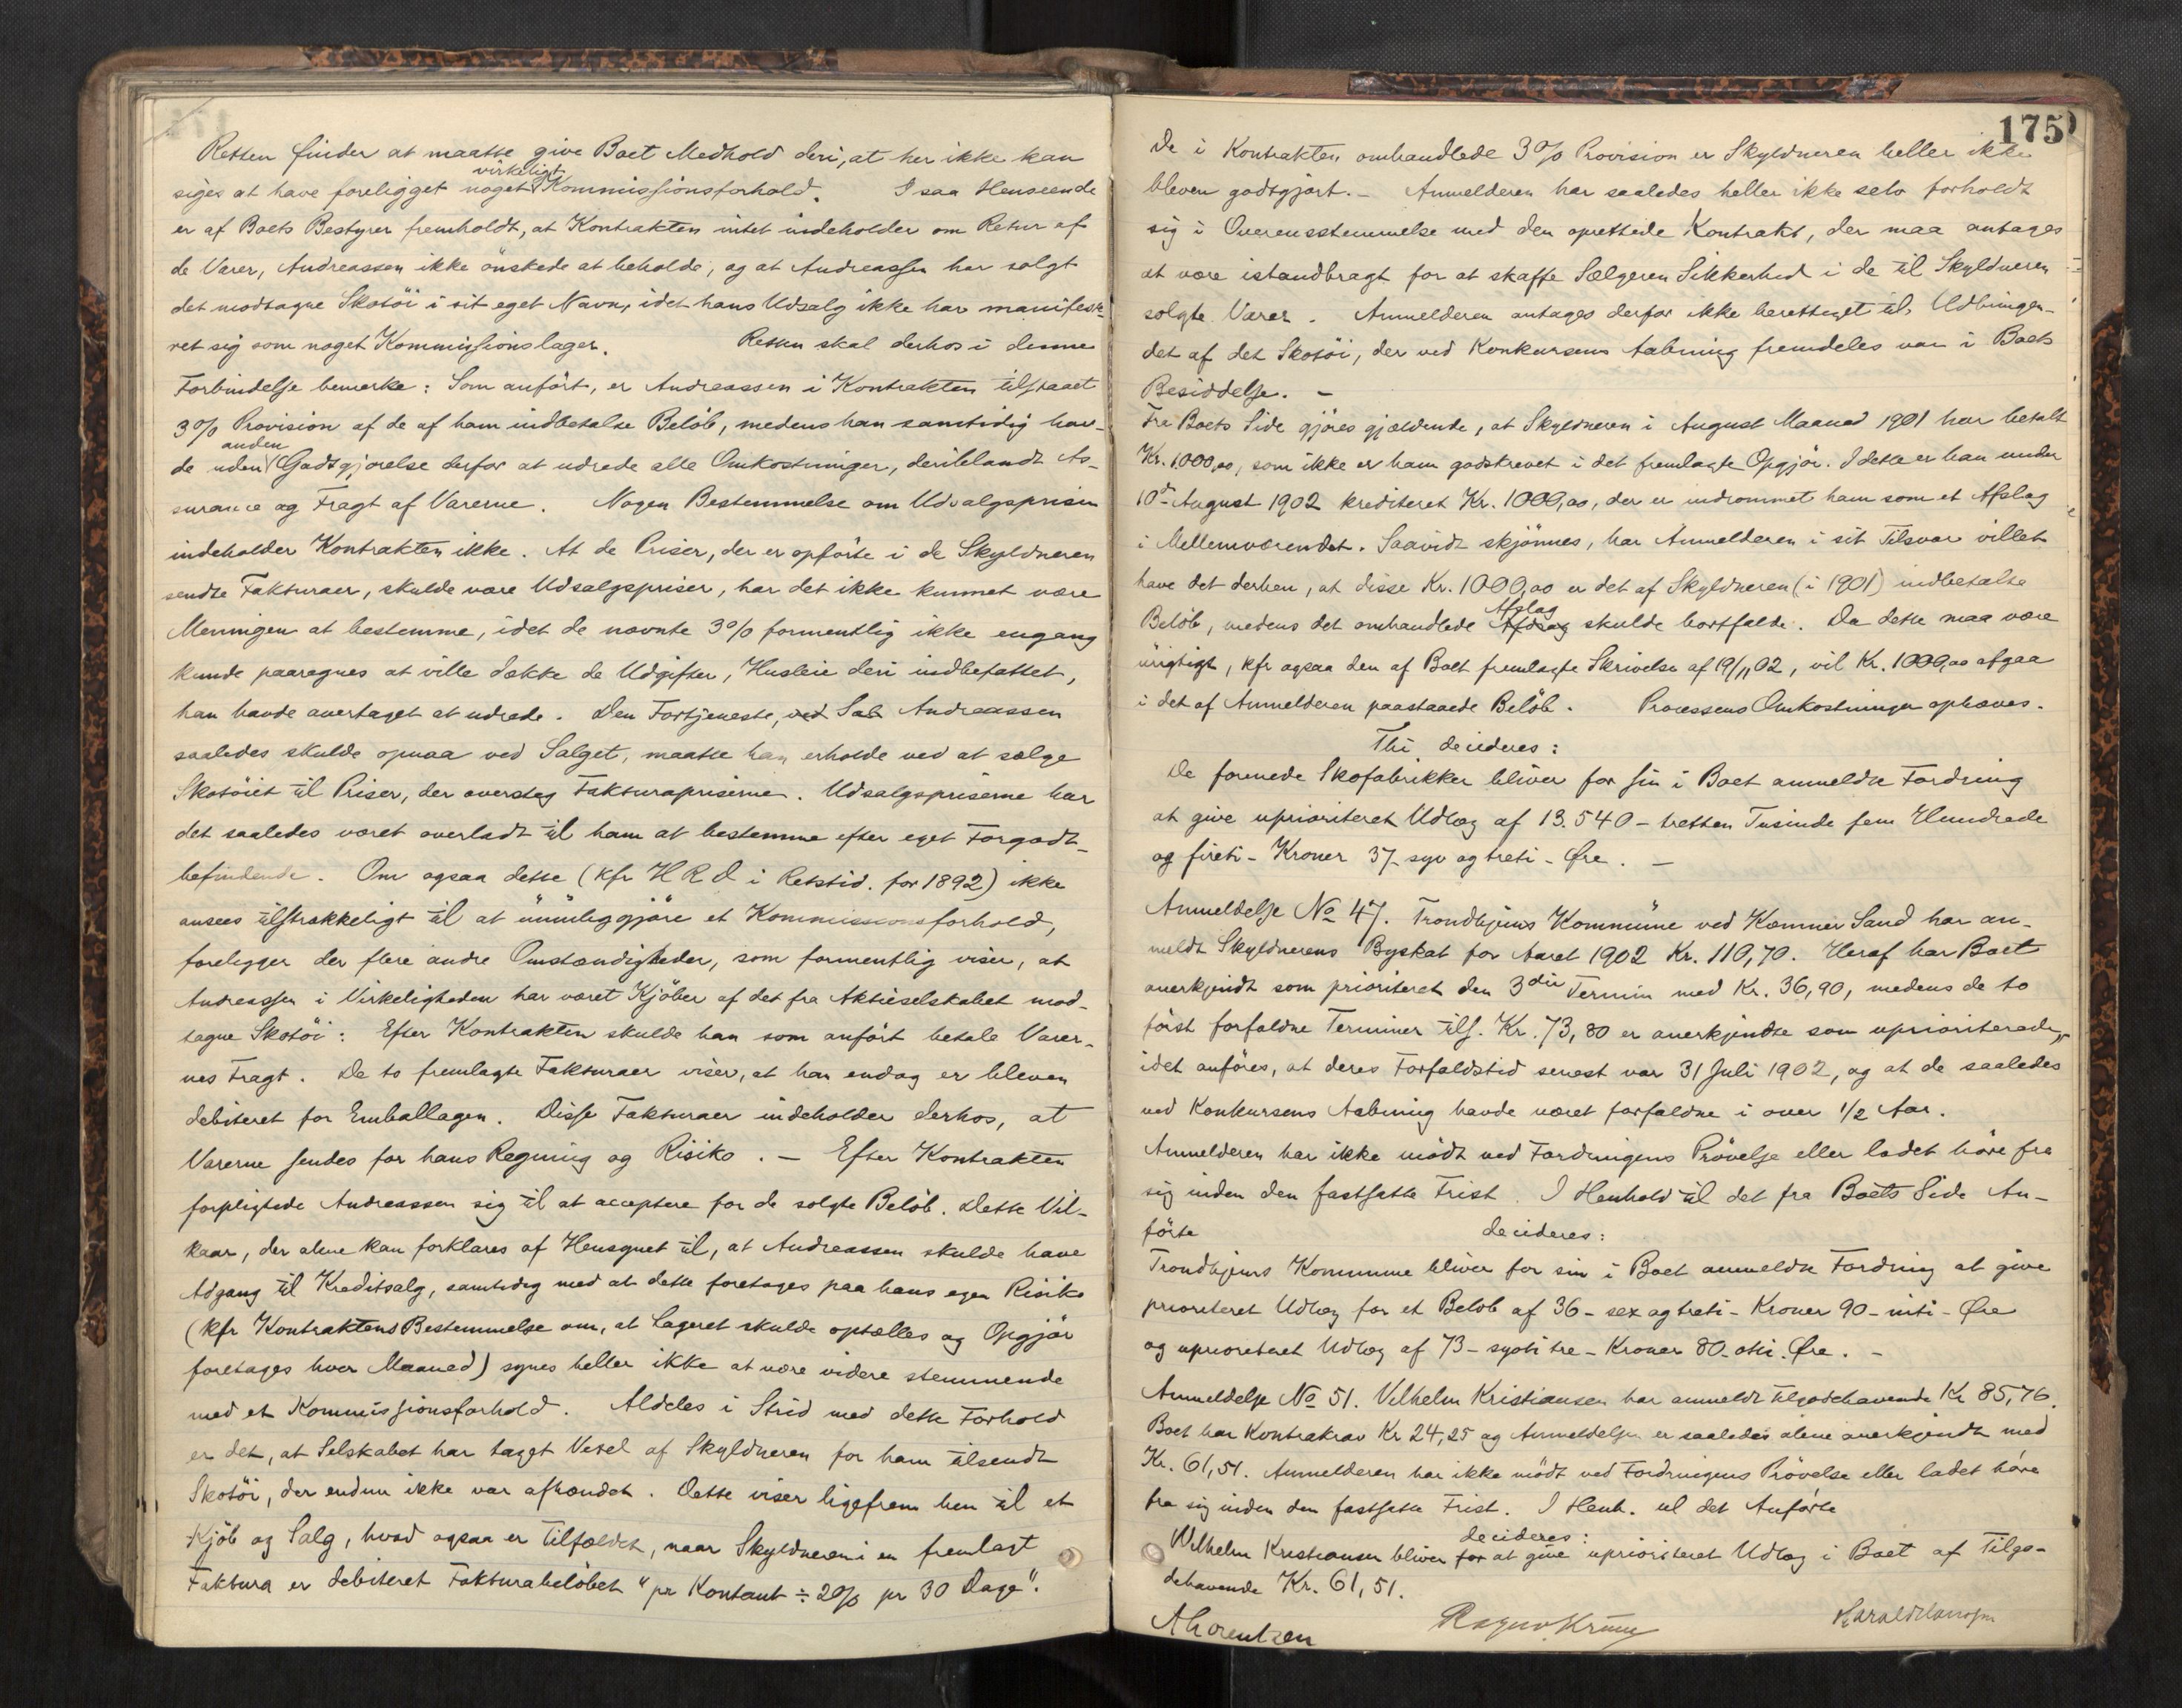 Retten finder at maatte give Boet Medhold deri, at her ikke kan
siges at have foreligget noget virkeligt Kommissionsforhold. I saa Henseende
er af Boets Bestyrer fremholdt, at Kontrakten intet indeholder om Retur af
de Varer, Andreassen ikke önskede at beholde, og at Andreassen har solgt
det modtagne Skotöi i sit eget Navn, idet hans Udsalg ikke har manifeste-
ret sig som noget Kommissionslager. Retten skal derhos i denne
Forbindelse bemærke: Som anfört, er Andreassen i Kontrakten tilstaaet
3% Provision af de af ham indbetalte Belöb, medens han samtidig hav-
de uden anden Godtgjörelse derfor at udrede alle Omkostninger, deriblandt As-
surance og Fragt af Varerne. Nogen Bestemmelse om Udsalgsprisen
indeholder Kontrakten ikke. At de Priser, der er opförte i de Skyldneren
sendte Fakturaer, skulde være Udsalgspriser, har det ikke kunnet være
Meningen at bestemme, idet de nævnte 3% formentlig ikke engang
kunde paaregnes at ville dække de Udgifter, Husleie deri indbefattet,
han havde overtaget at udrede. Den Fortjeneste, ved Sal Andreassen
saaledes skulde opnaa ved Salget, maatte han erholde ved at sælge
Skotöiet til Priser, der oversteg Fakturapriserne. Udsalgspriserne har
det saaledes været overladt til ham at bestemme efter eget Forgodt-
befindende. Om ogsaa dette (kfr H R D i Retstid. for 1892) ikke
ansees tilstrækkeligt til at umuliggjöre et Kommissionsforhold,
foreligger der flere andre Omstændigheder, som formentlig viser, at
Andreassen i Virkeligheden har været Kjöber af det fra Aktieselskabet mod-
tagne Skotöi: Efter Kontrakten skulde han som anfört betale Varer-
nes Fragt. De to fremlagte Fakturaer viser, at han endog er bleven
debiteret for Emballagen. Disse Fakturaer indeholder derhos, at
Varerne sendes for hans Regning og Risiko. — Efter Kontrakten
forpligtede Andreassen sig til at acceptere for de solgte Belöb. Dette Vil-
kaar, der alene kan forklares af Hensynet til, at Andreassen skulde have
Adgang til Kreditsalg, samtidig med at dette foretages paa hans egen Risiko
(kfr Kontraktens Bestemmelse om, at Lageret skulde optælles og Opgjör
foretages hver Maaned) synes heller ikke at være videre stemmende
med et Kommissionsforhold. Aldeles i Strid med dette Forhold
er det, at Selskabet har taget Vexel af Skyldneren for ham tilsendt
Skotöi, der endnu ikke var afhændet. Dette viser ligefrem hen til et
Kjöb og Salg, hvad ogsaa er Tilfældet, naar Skyldneren i en fremlagt
Faktura er debiteret Fakturabelöbet "pr Kontant ÷ 2% pr 30 Dage".
175
De i Kontrakten omhandlede 3% Provision er Skyldneren heller ikke
bleven godtgjort. — Anmelderen har saaledes heller ikke selv forholdt
sig i Overensstemmelse med den oprettede Kontrakt, der maa antages
at være istandbragt for at skaffe Sælgeren Sikkerhed i de til Skyldneren
solgte Varer. Anmelderen antages derfor ikke berettiget til Udbringen-
det af det Skotöi, der ved Konkursens Aabning fremdeles var i Boets
Besiddelse. —
Fra Boets Side gjöres gjældende, at Skyldneren i August Maaned 1901 har betalt
Kr. 1000,00, som ikke er ham godskrevet i det fremlagte Opgjör. I dette er han under
10de August 1902 krediteret Kr. 1000,00, der er indrömmet ham som et Afslag
i Mellemværendet. Saavidt skjönnes, har Anmelderen i sit Tilsvar villet
have det derhen, at disse Kr. 1000,00 er det af Skyldneren (i 1901) indbetalte
Belöb, medens det omhandlede Afdrag Afslag skulde bortfalde. Da dette maa være
urigtigt, kfr ogsaa den af Boet fremlagte Skrivelse af 19/11 02, vil Kr. 1000,00 afgaa
i det af Anmelderen paastaaede Belöb. Processens Omkostninger ophæves.
Thi decideres:
De forenede Skofabrikker bliver for sin i Boet anmeldte Fordring
at give uprioriteret Udlæg af 13.540 - tretten Tusinde fem Hundrede
og fireti - Kroner 37 - syv og treti - Øre. —
Anmeldelse No 47. Trondhjems Kommune ved Kæmner Sand har an-
meldt Skyldnerens Byskat for Aaret 1902 Kr. 110,70. Heraf har Boet
anerkjendt som prioriteret den 3die Termin med Kr. 36,90, medens de to
först forfaldne Terminer tils. Kr. 73,80 er anerkjendte som uprioriterede,
idet anföres, at deres Forfaldstid senest var 31 Juli 1902, og at de saaledes
ved Konkursens Aabning havde været forfaldne i over 1/2 Aar.
Anmelderen har ikke mödt ved Fordringens Prövelse eller ladet höre fra
sig inden den fastsatte Frist. I Henhold til det fra Boets Side An-
förte decideres:
Trondhjems Kommune bliver for sin i Boet anmeldte Fordring at give
prioriteret Udlæg for et Belöb af 36 - sex og treti - Kroner 90 - niti - Øre
og uprioriteret Udlæg af 73 - sytti tre - Kroner 80 - otti - Øre. —
Anmeldelse No 51. Vilhelm Kristiansen har anmeldt Tilgodehavende Kr 85,76.
Boet har Kontrakrav Kr 24,25 og Anmeldelsen er saaledes alene anerkjendt med
Kr. 61,51. Anmelderen har ikke mödt ved Fordringens Prövelse eller ladet höre
fra sig inden den fastsatte Frist. I Henh. til det Anförte
decideres:
Vilhelm Kristiansen bliver for at give uprioriteret Udlæg i Boet af Tilgo-
dehavende Kr. 61,51.
A Lorentzen Harald